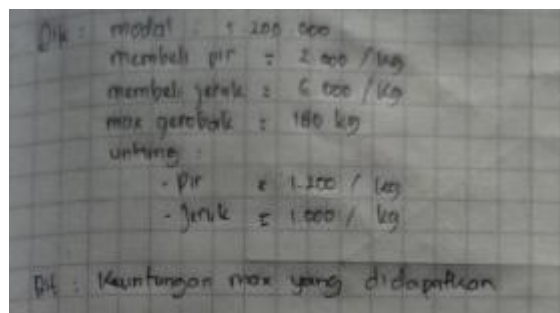 Dik : modal : 1 200 000
membeli pir = 2 000 / kg
membeli jeruk = 6 000 / kg
max gerobak = 180 kg
untung :
- Pir = 1.200 / kg
- Jeruk = 1.000 / kg
Dit : Keuntungan max yang didapatkan